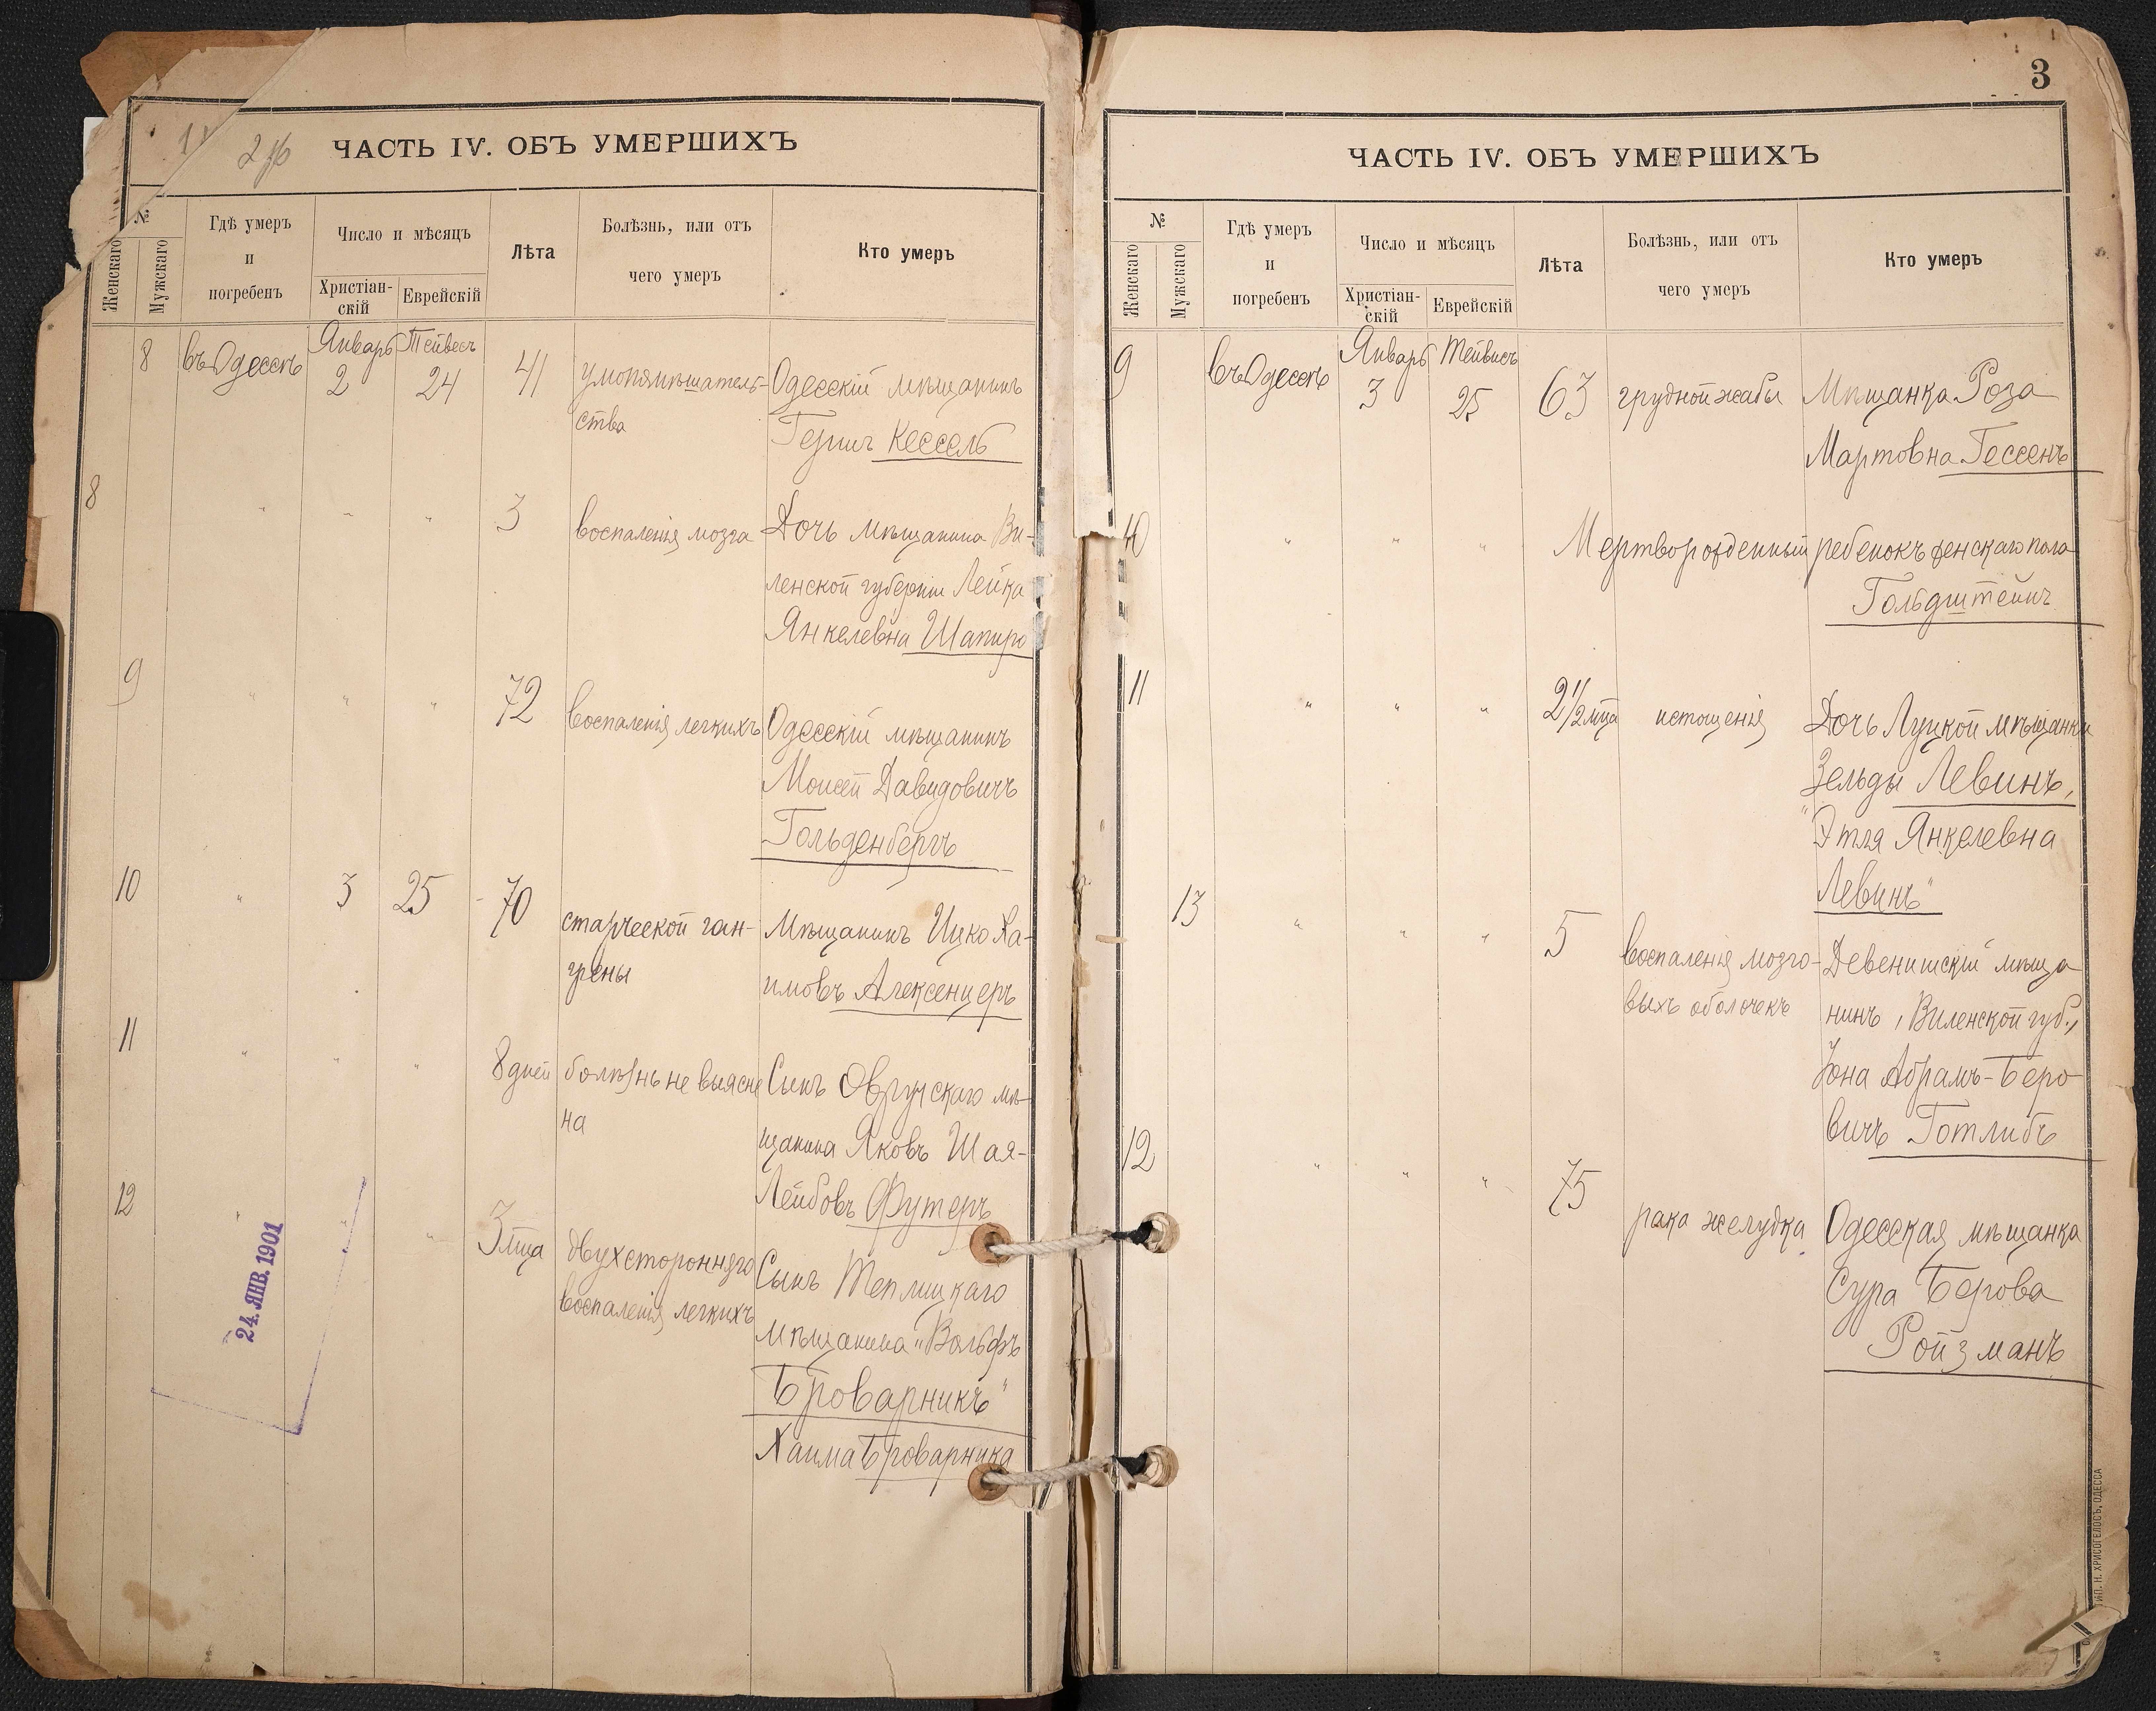 2
ЧАСТЬ IV. ОБЪ УМЕРШИХЪ
№
Женскаго
Мужскаго
Гдѣ умеръ
и
погребенъ
Число и мѣсяцъ
Христіан-
скій
Еврейскій
Лѣта
Болѣзнь, или отъ
чего умеръ
Кто умеръ
Январь Тейвесъ
8 въ Одессѣ 2 24 41 умопомѣшатель- Одесскій мѣщанинъ
ства Гершъ Кессель
8 " " " 3 воспаленія мозга Дочь мѣщанина Ви-
ленской губерніи Лейка
Янкелевна Шапиро
9 " " " 72 воспаленія легкихъ Одесскій мѣщанинъ
Моисей Давидовичъ
Гольденбергъ
10 " 3 25 70 старческой ган- Мѣщанинъ Ицко Ха-
грены имовъ Алексенцеръ
11 " " " 8 дней болѣзнь не выясне Сынъ Овручскаго мѣ-
на щанина Яковъ Шая-
Лейбовъ Футеръ
12 " " " 3 м-ца двухсторонняго Сынъ Теплицкаго
воспаленія легкихъ мѣщанина „Вольфъ
Броварникъ"
Хаима Броварника
24. ЯНВ. 1901
3
ЧАСТЬ IV. ОБЪ УМЕРШИХЪ
№
Женскаго
Мужскаго
Гдѣ умеръ
и
погребенъ
Число и мѣсяцъ
Христіан-
скій
Еврейскій
Лѣта
Болѣзнь, или отъ
чего умеръ
Кто умеръ
Январь Тейвисъ
9 въ Одессѣ 3 25 63 грудной жабы Мѣщанка Роза
Мартовна Гессенъ
10 " " " Мертворожденный ребенокъ женскаго пола
Гольдштейнъ
11 " " " 2 1/2 м-ца истощенія Дочь Луцкой мѣщанки
Зельды Левинъ,
„Этля Янкелевна
Левинъ"
13 " " " 5 воспаленія мозго- Девенишскій мѣща
выхъ оболочекъ нинъ, Виленской губ.,
Іона Абрамъ-Беро
вичъ Готлибъ
12 " " " 75 рака желудка Одесская мѣщанка
Сура Берова
Ройзманъ
ТИП. Н. ХРИСОГЕЛОСЪ, ОДЕССА